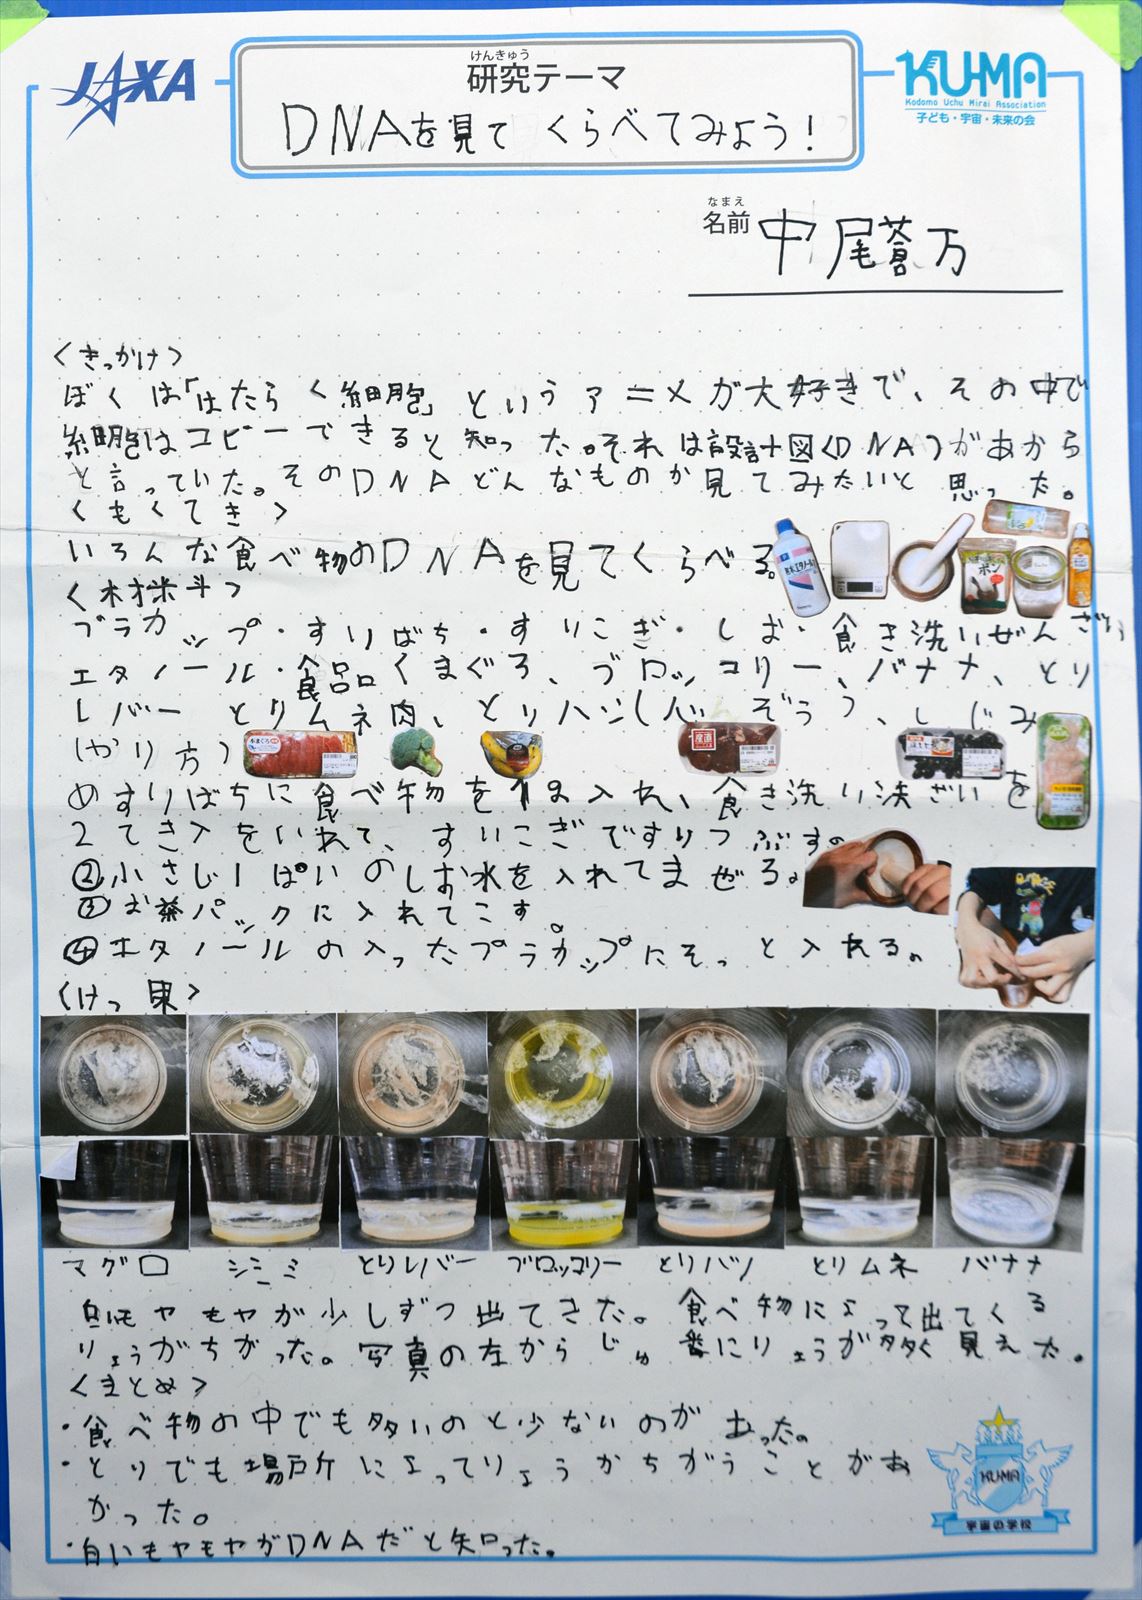 JAXA
けんきゅう
研究テーマ
DNAを見て くらべてみよう!
KU-MA
Kodomo Uchu Mirai Association
子ども・宇宙・未来の会
なまえ
名前 中尾蒼万
〈きっかけ〉
ぼくは「はたらく細胞」というアニメが大好きで、その中で
細胞はコピーできると知った。それは設計図(DNA)があから
と言っていた。そのDNAどんなものか見てみたいと思った。
〈もくてき〉
いろんな食べ物のDNAを見てくらべる。
〈材料〉
プラカップ・すりばち・すりこぎ・しお・食き洗いせんざい
エタノール・食品(まぐろ、ブロッコリー、バナナ、とり
レバー とりムネ肉、とりハツ(しんぞう)、しじみ
(やり方)
すりばちに食べ物を 入れ、食き洗い洗ざいを
2てき入をいれて、すいこぎですりつぶす。
②小さじ1ぱいのしお水を入れてまぜる。
③お茶パックに入れてこす。
④エタノールの入ったプラカップにそっと入れる。
〈けっ果〉
マグロ シジミ とりレバー ブロッコリー とりハツ とりムネ バナナ
白いモヤモヤが少しずつ出てきた。食べ物によって出てくる
りょうがちがった。写真の左からじゅ番にりょうが多く見えた。
〈まとめ〉
・食べ物の中でも多いのと少ないのがあった。
・とりでも場所によってりょうがちがうことがわ
かった。
・白いもヤモヤがDNAだと知った。
KU-MA
宇宙の学校